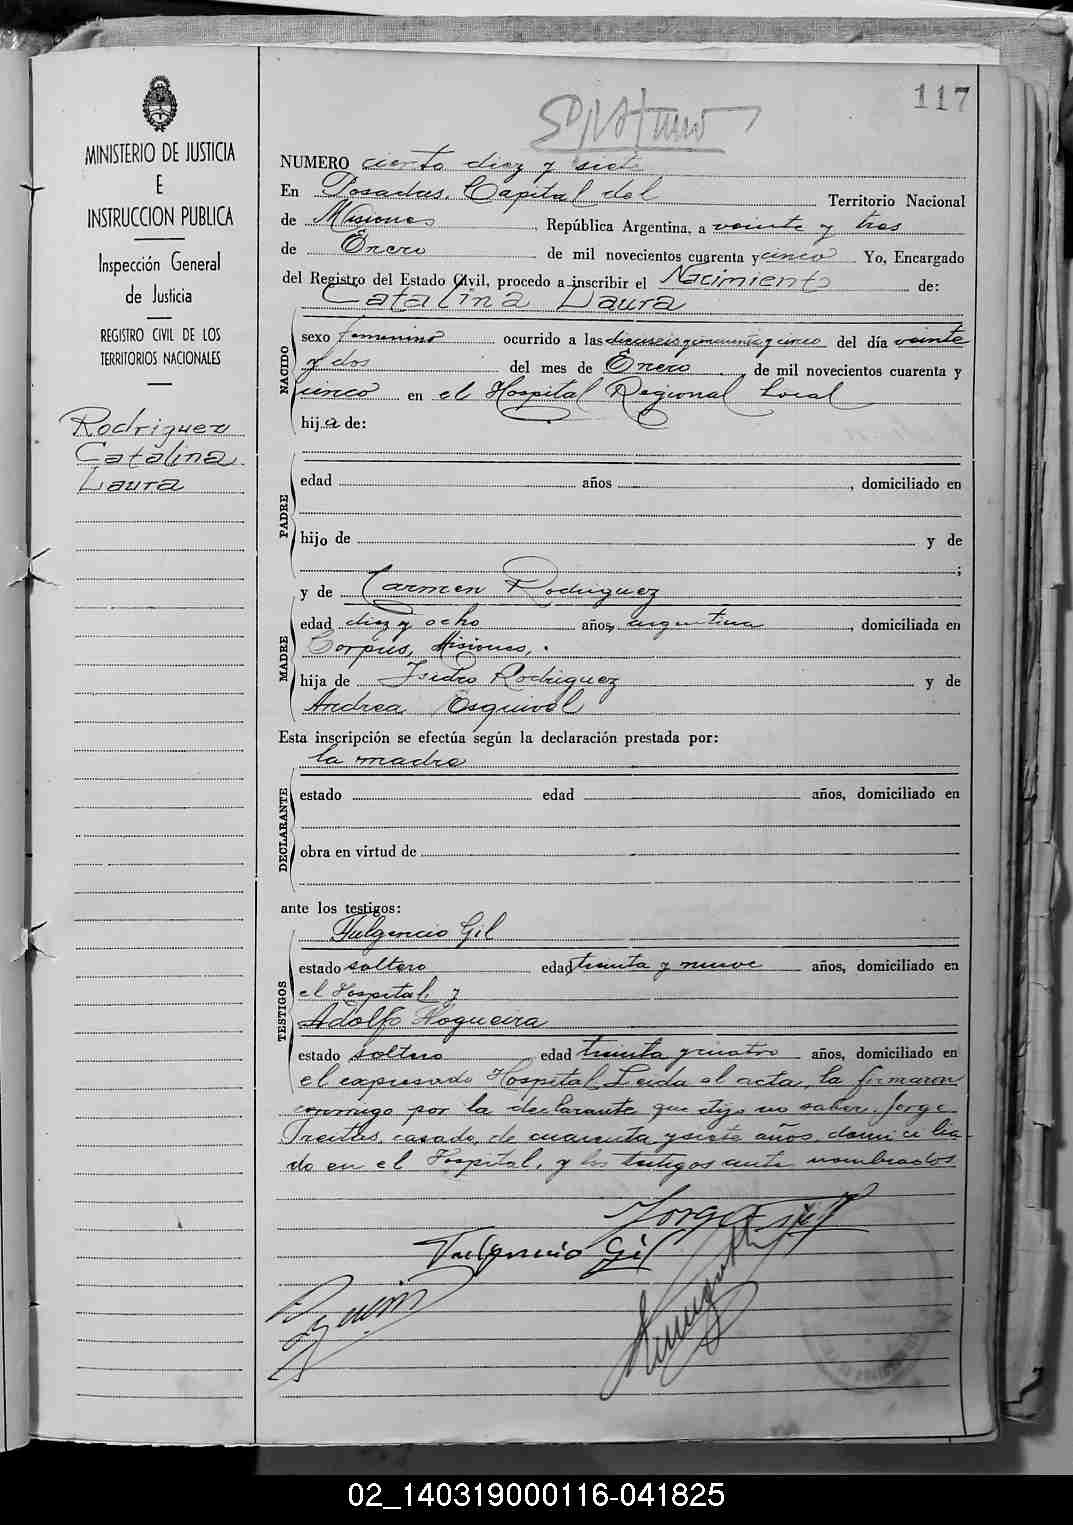 117
MINISTERIO DE JUSTICIA
E
INSTRUCCION PUBLICA
Inspección General
de Justicia
REGISTRO CIVIL DE LOS
TERRITORIOS NACIONALES
Rodriguez
Catalina
Laura
NUMERO ciento diez y siete
En Posadas, Capital del Territorio Nacional
de Misiones, República Argentina, a veinte y tres
de Enero de mil novecientos cuarenta y cinco Yo, Encargado
del Registro del Estado Civil, procedo a inscribir el Nacimiento de:
Catalina Laura
NACIDO
sexo femenino ocurrido a las dieciseis y cincuenta y cinco del día veinte
y dos del mes de Enero de mil novecientos cuarenta y
cinco en el Hospital Regional Local
hija de:
PADRE
edad años, domiciliado en
hijo de y de
;
y de Carmen Rodriguez
MADRE
edad diez y ocho años, argentina, domiciliada en
Corpus, Misiones,.
hija de Isidro Rodriguez y de
Andrea Esquivel
Esta inscripción se efectúa según la declaración prestada por:
la madre
DECLARANTE
estado edad años, domiciliado en
obra en virtud de
ante los testigos:
TESTIGOS
Fulgencio Gil
estado soltero edad treinta y nueve años, domiciliado en
el Hospital y
Adolfo Nogueira
estado soltero edad treinta y cuatro años, domiciliado en
el expresado Hospital. Leida el acta, la firmaron
conmigo por la declarante que dijo no saber, Jorge
casado, de cuarenta y siete años, domicilia-
do en el Hospital, y los testigos ante nombrados
Jorge
Fulgencio Gil
02_140319000116-041825